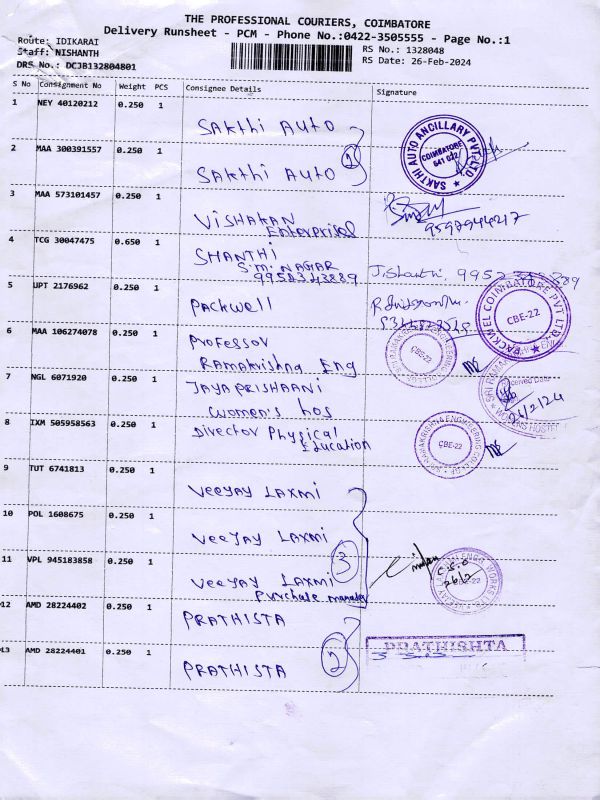 THE PROFESSIONAL COURIERS, COIMBATORE
Delivery Runsheet - PCM - Phone No.:0422-3505555 - Page No.:1
Route: IDIKARAI
RS No.: 1328048
Staff: NISHANTH
RS Date: 26-Feb-2024
DRS No.: DCJB132804801
S No Consignment No Weight PCS Consignee Details Signature
1 NEY 40120212 0.250 1
SAKthi AUTO
2 MAA 300391557 0.250 1
SAKthi AUTO
2
SAKTHI AUTO ANCILLARY PVT LTD
COIMBATORE
641 022
3 MAA 573101457 0.250 1
VISHAKAN
Enterprises
9597944217
4 TCG 30047475 0.650 1
SHANTHI
S.M. NAGAR
9952343889
J. Shanthi, 9952343889
5 UPT 2176962 0.250 1
PACKwell
PACKWEL COIMBATORE PVT LTD
CBE-22
6 MAA 106274078 0.250 1
PROFESSOR
RAMAKRISHNA Eng
CBE-22
7 NGL 6071920 0.250 1
JAYAPRISHAANI
women's hos
Received Date
26/2/24
8 IXM 505958563 0.250 1
Director Physical
Education
CBE-22
9 TUT 6741813 0.250 1
VEEJAY LAXMI
10 POL 1608675 0.250 1
VEEJAY LAXMI
3
11 VPL 945183858 0.250 1
VEEJAY LAXMI
Purchase manager
C.S.O
26/2
12 AMD 28224402 0.250 1
PRATHISTA
13 AMD 28224401 0.250 1
PRATHISTA
2
PRATHISHTA